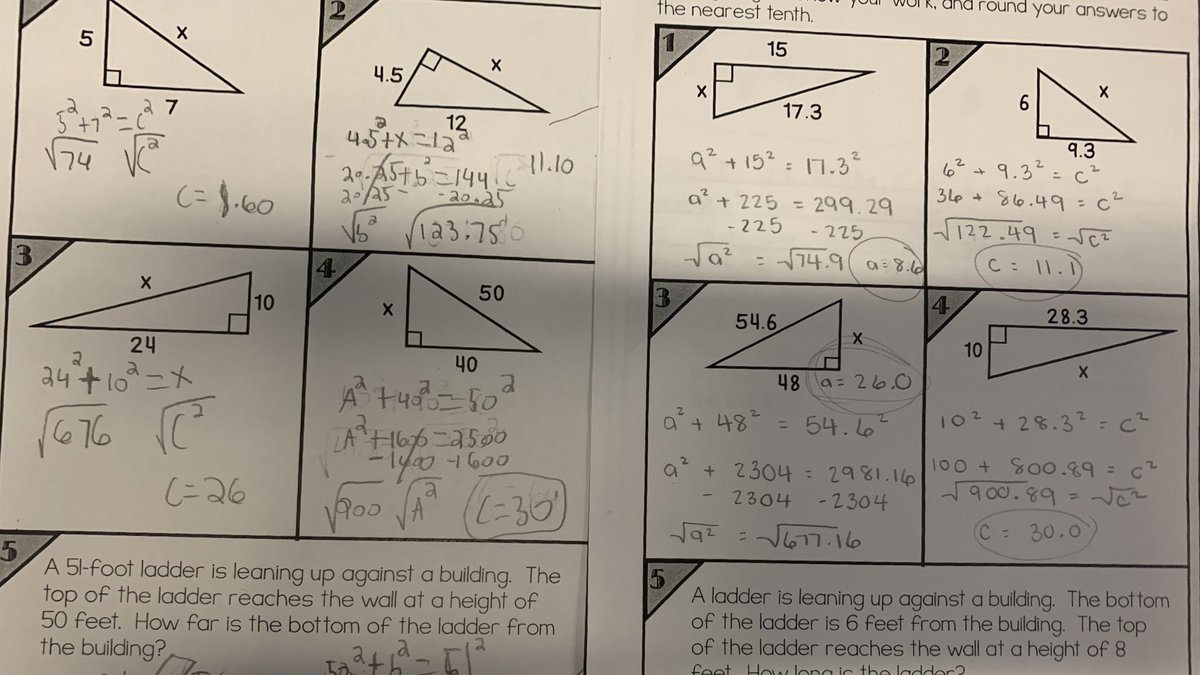 5
x
7
5²+7²=c²
√74 √c²
C=8.60
2
4.5
x
12
4.5²+x=12²
20.25+b²=144
11.10
20.25 -20.25
√b² √123.75
3
x
10
24
24²+10²=x
√676 √c²
C=26
4
x
50
40
A²+40²=50²
A²+1600=2500
-1600 -1600
√900 √A² C=30
5
A 51-foot ladder is leaning up against a building. The
top of the ladder reaches the wall at a height of
50 feet. How far is the bottom of the ladder from
the building?
50²+b²=51²
your work, and round your answers to
the nearest tenth.
1
15
x
17.3
a² + 15² = 17.3²
a² + 225 = 299.29
-225 -225
√a² = √74.9 a=8.6
2
6
x
9.3
6² + 9.3² = c²
36 + 86.49 = c²
√122.49 = √c²
C = 11.1
3
54.6
x
48
a= 26.0
a² + 48² = 54.6²
a² + 2304 = 2981.16
- 2304 -2304
√a² = √677.16
4
28.3
10
x
10² + 28.3² = c²
100 + 800.89 = c²
√900.89 = √c²
C = 30.0
5
A ladder is leaning up against a building. The bottom
of the ladder is 6 feet from the building. The top
of the ladder reaches the wall at a height of 8
feet. How long is the ladder?